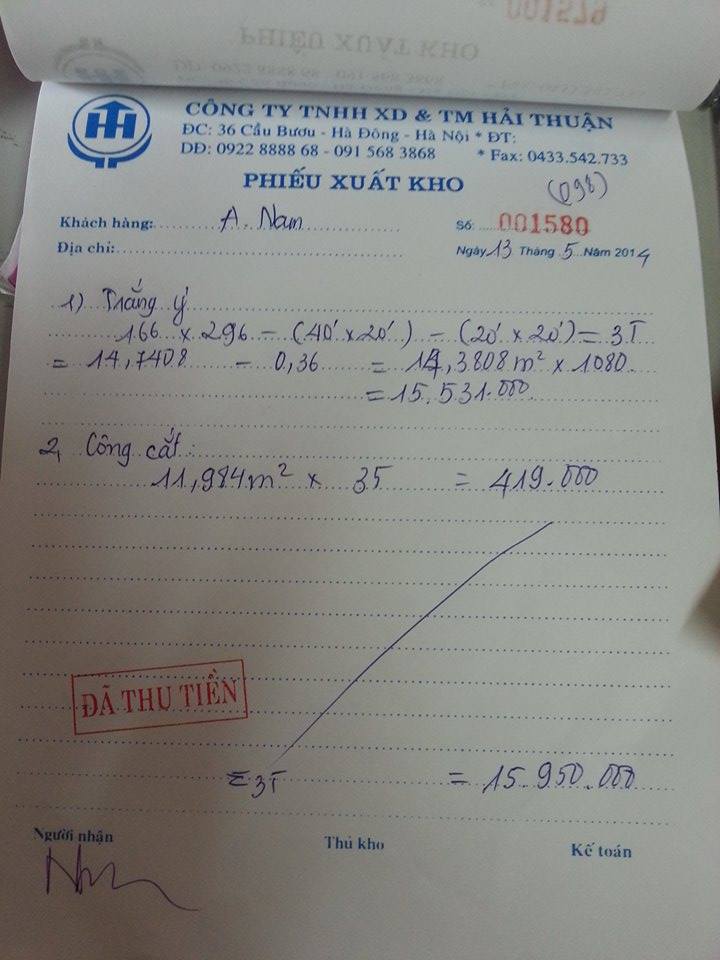 001579
PHIẾU XUẤT KHO
HH
CÔNG TY TNHH XD & TM HẢI THUẬN
ĐC: 36 Cầu Bươu - Hà Đông - Hà Nội * ĐT:
DĐ: 0922 8888 68 - 091 568 3868 * Fax: 0433.542.733
PHIẾU XUẤT KHO (098)
Khách hàng: A. Nam Số: 001580
Địa chỉ: Ngày 13 Tháng 5 Năm 2014
1) Trắng ý
166 x 296 - (40' x 20') - (20' x 20') = 3T
= 14,7408 - 0,36 = 14,3808 m² x 1080
= 15.531.000
2, Công cắt:
11,984 m² x 35 = 419.000
ĐÃ THU TIỀN
Σ 3T = 15.950.000
Người nhận Thủ kho Kế toán